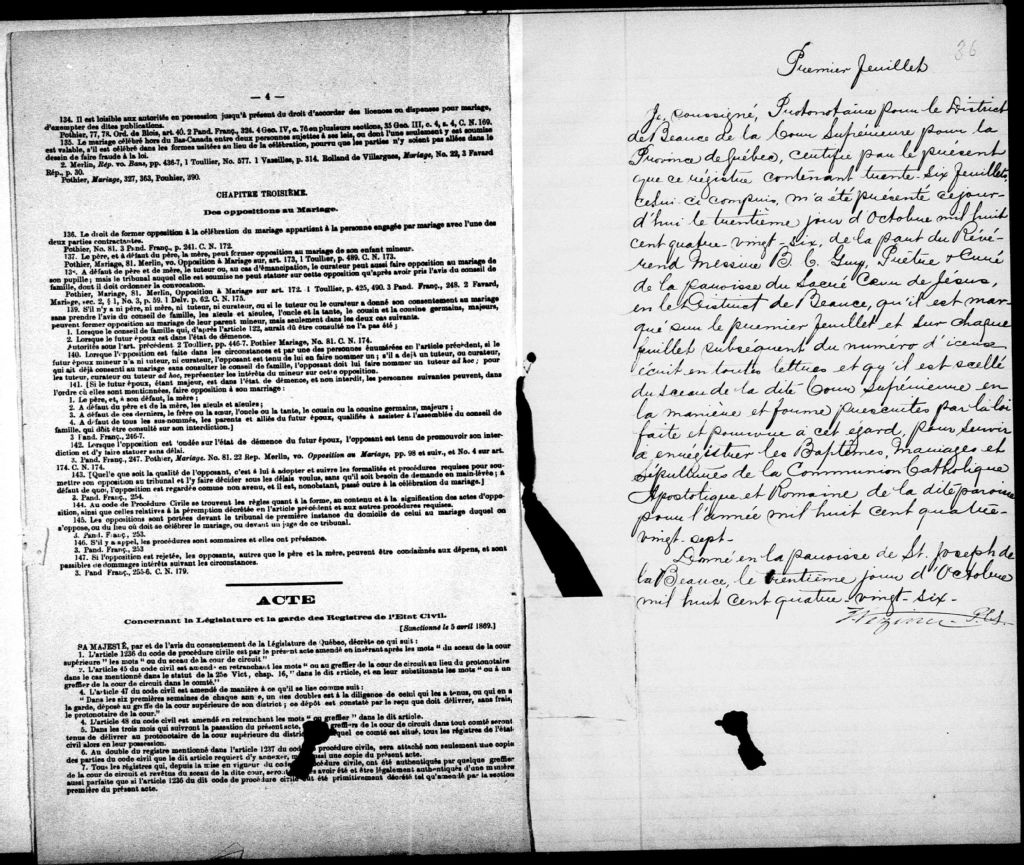 — 4 —
134. Il est loisible aux autorités en possession jusqu'à présent du droit d'accorder des licences ou dispenses pour mariage,
d'exempter des dites publications.
Pothier, 77, 78. Ord. de Blois, art. 40. 2 Pand. Franç., 324. 4 Geo. IV, c. 76 en plusieurs sections, 35 Geo. III, c. 4, s. 4, C. N. 169.
135. Le mariage célébré hors du Bas-Canada entre deux personnes sujettes à ses lois, ou dont l'une seulement y est soumise
est valable, s'il est célébré dans les formes usitées au lieu de la célébration, pourvu que les parties n'y soient pas allées dans le
dessin de faire fraude à la loi.
2. Merlin, Rép. vo. Bans, pp. 436-7, 1 Toullier, No. 577. 1 Vazeilles, p. 314. Rolland de Villargues, Mariage, No. 22, 3 Favard
Rép., p. 30.
Pothier, Mariage, 327, 363, Pouhier, 390.
CHAPITRE TROISIÈME.
Des oppositions au Mariage.
136. Le droit de former opposition à la célébration du mariage appartient à la personne engagée par mariage avec l'une des
deux parties contractantes.
Pothier, No. 81. 3 Pand. Franç., p. 241. C. N. 172.
137. Le père, et à défaut du père, la mère, peut former opposition au mariage de son enfant mineur.
Pothier, Mariage, 81. Merlin, vo. Opposition à Mariage sur, art. 173, 1 Toullier, p. 489. C. N. 173.
A défaut de père et de mère, le tuteur ou, au cas d'émancipation, le curateur peut aussi faire opposition au mariage de
son pupille; mais le tribunal auquel elle est soumise ne peut statuer sur cette opposition qu'après avoir pris l'avis du conseil de
famille, dont il doit ordonner la convocation.
Pothier, Mariage, 81. Merlin, Opposition à Mariage sur art. 172. 1 Toullier, p. 425, 490. 3 Pand. Franç., 248. 2 Favard,
Mariage, sec. 2, § 1, No. 3, p. 59. 1 Dalv. p. 62. C. N. 175.
139. S'il n'y a ni père, ni mère, ni tuteur, ni curateur, ou si le tuteur ou le curateur a donné son consentement au mariage
sans prendre l'avis du conseil de famille, les aieuls et aieules, l'oncle et la tante, le cousin et la cousine germains, majeurs,
peuvent former opposition au mariage de leur parent mineur, mais seulement dans les deux cas suivants.
1. Lorsque le conseil de famille qui, d'après l'article 122, aurait dû être consulté ne l'a pas été;
2. Lorsque le futur époux est dans l'état de démence.
Autorités sous l'art. précédent 2 Toullier, pp. 446-7. Pothier Mariage, No. 81. C. N. 174.
140. Lorsque l'opposition est faite dans les circonstances et par une des personnes énumérées en l'article précédent, si le
futur époux mineur n'a ni tuteur, ni curateur, l'opposant est tenu de lui en faire nommer un; s'il a déjà un tuteur, ou curateur,
qui ait déjà consenti au mariage sans consulter le conseil de famille, l'opposant doit lui faire nommer un tuteur ad hoc; pour
les tuteur, curateur ou tuteur ad hoc, représenter les intérêts du mineur sur cette opposition.
141. [Si le futur époux, étant majeur, est dans l'état de démence, et non interdit, les personnes suivantes peuvent, dans
l'ordre où elles sont mentionnées, faire opposition à son mariage:
1. Le père, et, à son défaut, la mère;
2. A défaut du père et de la mère, les aieuls et aieules;
3. A défaut de ces derniers, le frère ou la sœur, l'oncle ou la tante, le cousin ou la cousine germains, majeurs;
4. A défaut de tous les sus-nommés, les parents et alliés du futur époux, qualifiés à assister à l'assemblée du conseil de
famille, qui doit être consulté sur son interdiction.]
3 Pand. Franç., 246-7.
142. Lorsque l'opposition est fondée sur l'état de démence du futur époux, l'opposant est tenu de promouvoir son inter-
diction et d'y faire statuer sans délai.
3. Pand. Franç., 247. Pothier, Mariage. No. 81. 22 Rep. Merlin, vo. Opposition au Mariage, pp. 98 et suiv., et No. 4 sur art.
174. C. N. 174.
143. [Quelle que soit la qualité de l'opposant, c'est à lui à adopter et suivre les formalités et procédures requises pour sou-
mettre son opposition au tribunal et l'y faire décider sous les délais voulus, sans qu'il soit besoin de demande en main-levée; à
défaut de quoi, l'opposition est regardée comme non avenu, et il est, nonobstant, passé outre à la célébration du mariage.]
3. Pand. Franç., 254.
144. Au code de Procédure Civile se trouvent les règles quant à la forme, au contenu et à la signification des actes d'oppo-
sition, ainsi que celles relatives à la péremption décrétée en l'article précédent et aux autres procédures requises.
145. Les oppositions sont portées devant le tribunal de première instance du domicile de celui au mariage duquel on
s'oppose, ou du lieu où doit se célébrer le mariage, ou devant un juge de ce tribunal.
3. Pand. Franç., 253.
146. S'il y a appel, les procédures sont sommaires et elles ont préséance.
3. Pand. Franç., 253
147. Si l'opposition est rejetée, les opposants, autres que le père et la mère, peuvent être condamnés aux dépens, et sont
passibles de dommages intérêts suivant les circonstances.
3. Pand Franç., 255-6. C. N. 179.
ACTE
Concernant la Législature et la garde des Registres de l'Etat Civil.
[Sanctionné le 5 avril 1869.]
SA MAJESTÉ, par et de l'avis du consentement de la Législature de Québec, décrète ce qui suit:
1. L'article 1236 du code de procédure civile est par le présent acte amendé en insérant après les mots " du sceau de la cour
supérieure " les mots " ou du sceau de la cour de circuit "
2. L'article 45 du code civil est amendé en retranchant les mots " ou au greffier de la cour de circuit au lieu du protonotaire
dans le cas mentionné dans le statut de la 25e Vict, chap. 16, " dans le dit article, et en leur substituant les mots " ou à un
greffier de la cour de circuit dans le comté."
4. L'article 47 du code civil est amendé de manière à ce qu'il se lise comme suit:
" Dans les six premières semaines de chaque année, un des doubles est à la diligence de celui qui les a tenus, ou qui en a
la garde, déposé au greffe de la cour supérieure de son district; ce dépôt est constaté par le reçu que doit délivrer, sans frais,
le protonotaire de la cour."
4. L'article 48 du code civil est amendé en retranchant les mots " ou greffier " dans le dit article.
5. Dans les trois mois qui suivront la passation du présent acte, greffiers de la cour de circuit dans tout comté seront
tenus de délivrer au protonotaire de la cour supérieure du district lequel ce comté est situé, tous les régistres de l'état
civil alors en leur possession.
6. Au double du registre mentionné dans l'article 1237 du code procédure civile, sera attaché non seulement une copie
des parties du code civil que le dit article requiert d'y annexer, aussi une copie du présent acte.
7. Tous les régistres qui, depuis la mise en vigueur du code procédure civile, ont été authentiqués par quelque greffier
de la cour de circuit et revêtus du sceau de la dite cour, seront avoir été et être légalement authentiqués d'une manière
aussi parfaite que si l'article 1236 du dit code de procédure civile eut été primitivement décrété tel qu'amendé par la section
première du présent acte.
36
Premier feuillet
Je, soussigné, Protonotaire pour le District
de Beauce de la Cour Supérieure pour la
Province de Québec, certifie par le présent
que ce régistre contenant trente-six feuillets
celui-ci compris, m'a été présenté ce jour-
d'hui le trentième jour d'Octobre mil huit
cent quatre-vingt-six, de la part du Révé-
rend Messire B. C. Guy, Prêtre & Curé
de la paroisse du Sacré Cœur de Jésus,
en le District de Beauce, qu'il est mar-
qué sur le premier feuillet et sur chaque
feuillet subséquent du numéro d'iceux
écrit en toutes lettres et qu'il est scellé
du sceau de la dite Cour Supérieure en
la manière et forme prescrites par la loi
faite et pourvue à cet égard, pour servir
à enregistrer les Baptêmes, Mariages et
Sépultures de la Communion Catholique
Apostolique et Romaine de la dite paroisse
pour l'année mil huit cent quatre-
vingt-sept.
Donné en la paroisse de St. Joseph de
la Beauce, le trentième jour d'Octobre
mil huit cent quatre-vingt-six.